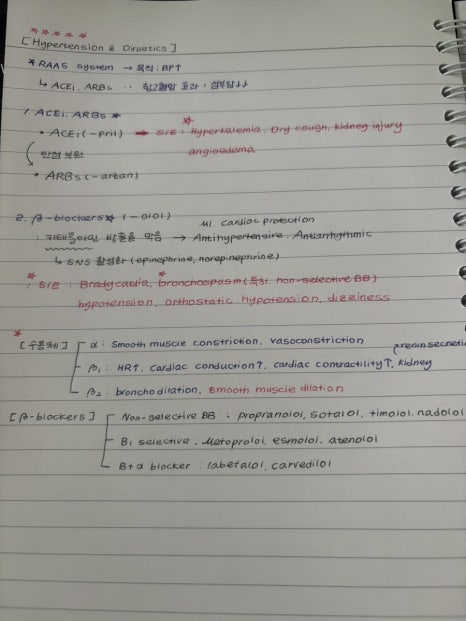 ☆☆☆☆☆
[Hypertension & Diruetics]
* RAAS System → 목적: BP↑
↳ ACEi, ARBs ·· 항고혈압 효과, 심부담↓↓
1. ACEi, ARBs ☆
• ACEi (-pril) → S/E : Hyperkalemia, Dry cough, kidney injury
angioedema
단점 보완
• ARBs (-artan)
2. β-blockers ☆ (-olol)
MI. cardiac protection
: 카테콜아민 방출을 막음 → Antihypertensive, Antiarrhythmic
↳ SNS 활성화 (epinephrine, norepinephrine)
: S/E : Bradycardia, bronchospasm (특히, non-selective BB)
hypotension, orthostatic hypotension, dizziness
[수용체] α : Smooth muscle constriction, vasoconstriction
β₁ : HR↑, cardiac conduction↑, cardiac contractility↑, kidney
β₂ : bronchodilation, smooth muscle dilation
[β-blockers] Non-selective BB : propranolol, sotalol, timolol, nadolol
B₁ selective : Metoprolol, esmolol, atenolol
B+α blocker : labetalol, carvedilol